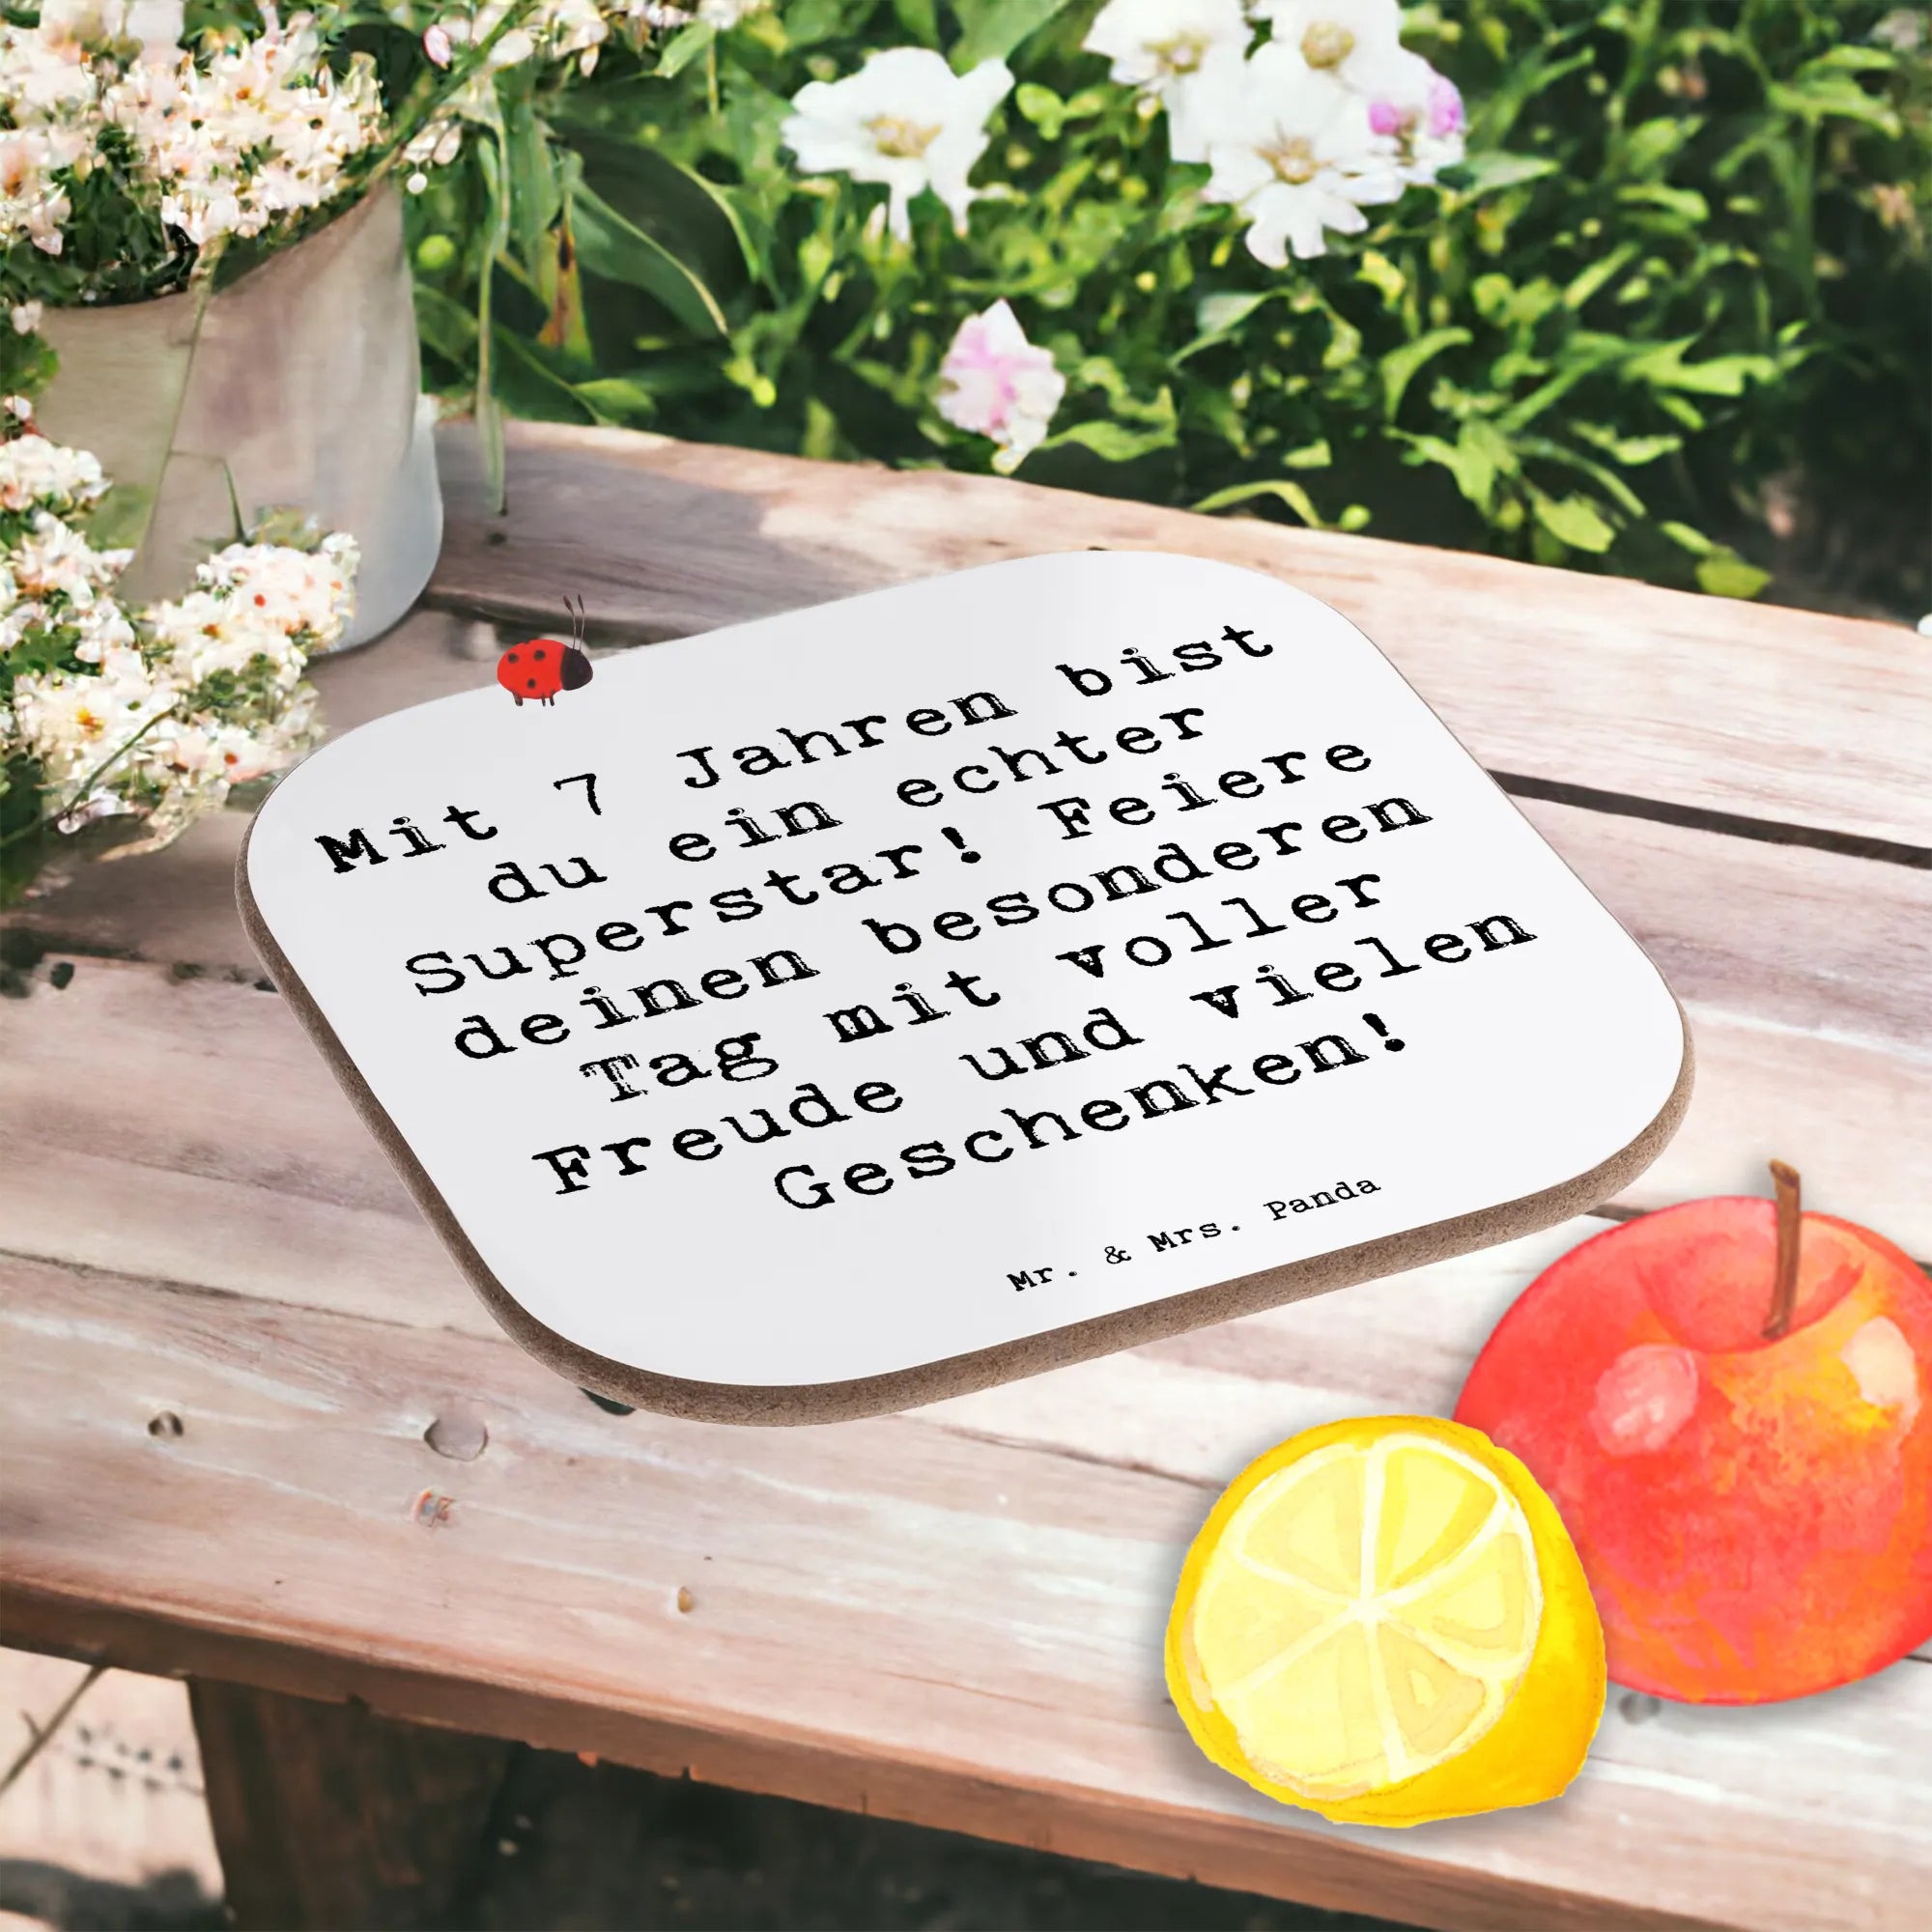 Mit 7 Jahren bist
du ein echter
Superstar! Feiere
deinen besonderen
Tag mit voller
Freude und vielen
Geschenken!
Mr. & Mrs. Panda